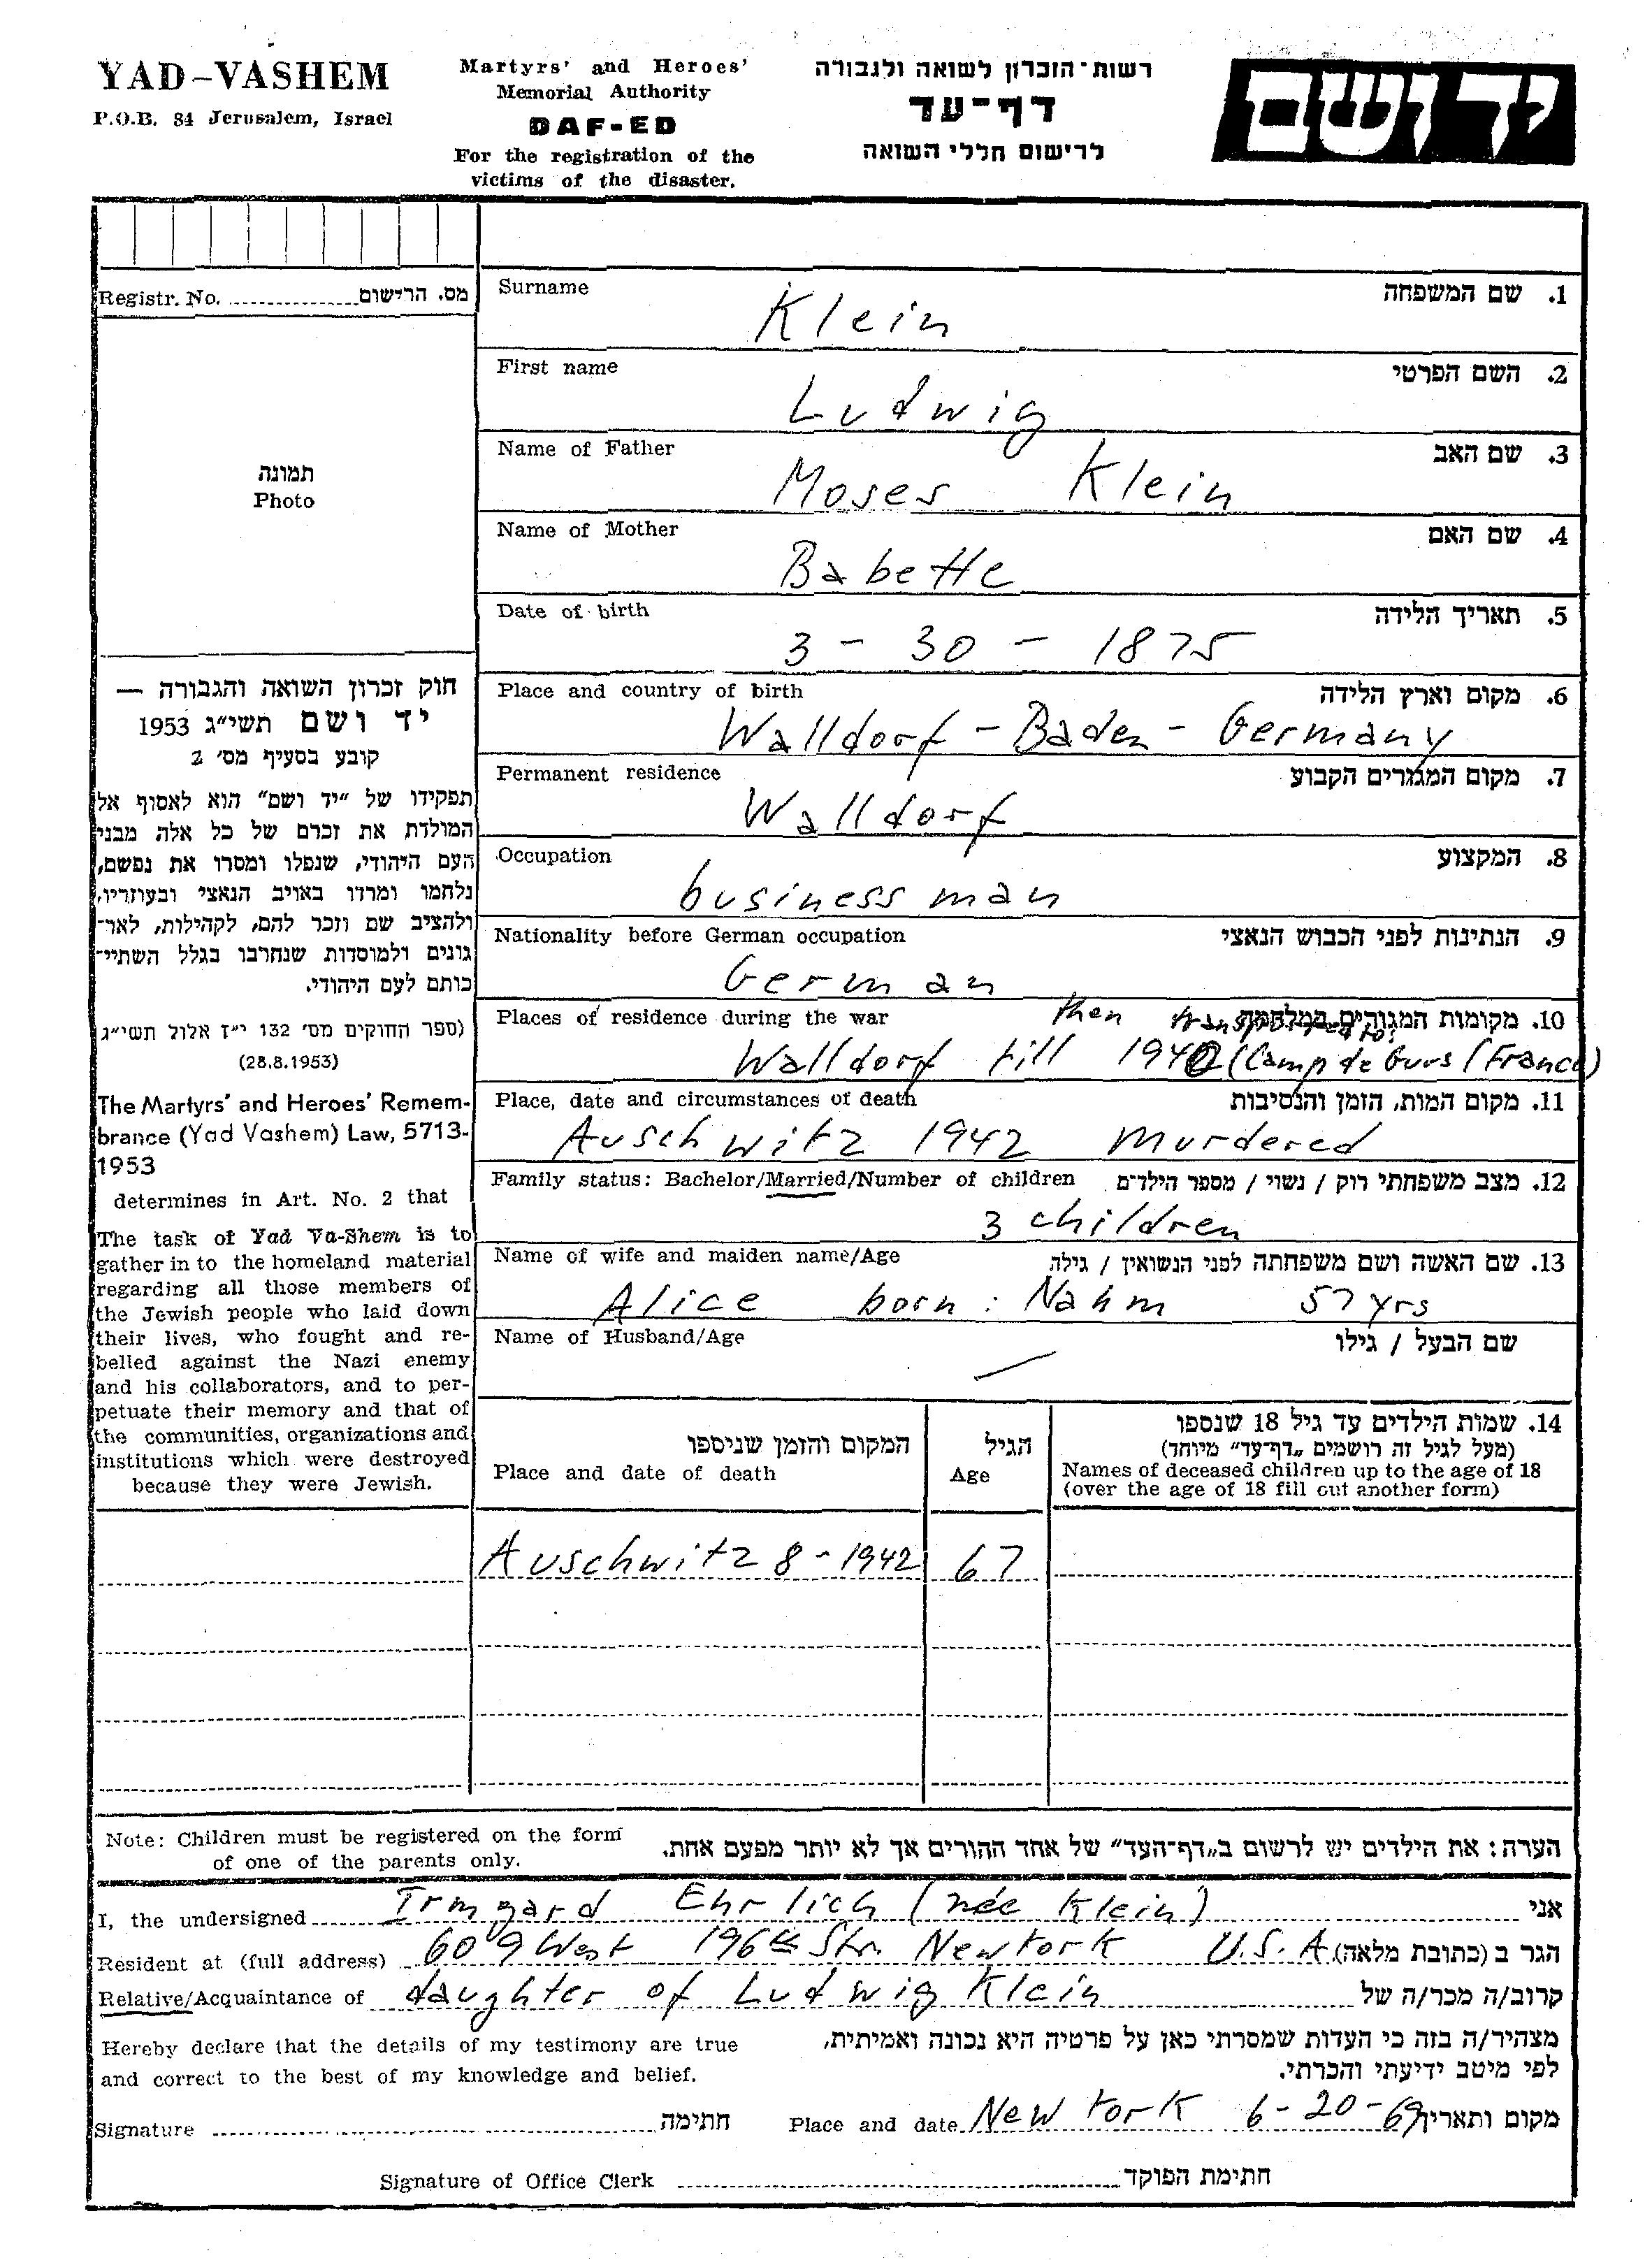 YAD-VASHEM
P.O.B. 84 Jerusalem, Israel
Martyrs' and Heroes'
Memorial Authority
DAF-ED
For the registration of the
victims of the disaster.
רשות־הזכרון לשואה ולגבורה
דף־עד
לרישום חללי השואה
יד ושם
Registr. No. מס. הרישום
תמונה
Photo
חוק זכרון השואה והגבורה —
יד ושם תשי"ג 1953
קובע בסעיף מס' 2
תפקידו של "יד ושם" הוא לאסוף אל
המולדת את זכרם של כל אלה מבני
העם היהודי, שנפלו ומסרו את נפשם,
נלחמו ומרדו באויב הנאצי ובעוזריו,
ולהציב שם וזכר להם, לקהילות, לאר־
גונים ולמוסדות שנחרבו בגלל השתיי־
כותם לעם היהודי.
(ספר החוקים מס' 132 י"ז אלול תשי"ג
(28.8.1953)
The Martyrs' and Heroes' Remem-
brance (Yad Vashem) Law, 5713-
1953
determines in Art. No. 2 that
The task of Yad Va-Shem is to
gather in to the homeland material
regarding all those members of
the Jewish people who laid down
their lives, who fought and re-
belled against the Nazi enemy
and his collaborators, and to per-
petuate their memory and that of
the communities, organizations and
institutions which were destroyed
because they were Jewish.
Surname 1. שם המשפחה
Klein
First name 2. השם הפרטי
Ludwig
Name of Father 3. שם האב
Moses Klein
Name of Mother 4. שם האם
Babette
Date of birth 5. תאריך הלידה
3 - 30 - 1875
Place and country of birth 6. מקום וארץ הלידה
Walldorf - Baden - Germany
Permanent residence 7. מקום המגורים הקבוע
Walldorf
Occupation 8. המקצוע
business man
Nationality before German occupation 9. הנתינות לפני הכבוש הנאצי
German
Places of residence during the war 10. מקומות המגורים במלחמה
then transported to:
Walldorf till 1940 (Camp de Gurs (France)
Place, date and circumstances of death 11. מקום המות, הזמן והנסיבות
Auschwitz 1942 murdered
Family status: Bachelor/Married/Number of children 12. מצב משפחתי רוק / נשוי / מספר הילדים
3 children
Name of wife and maiden name/Age 13. שם האשה ושם משפחתה לפני הנשואין / גילה
Alice born: Nahm 57 yrs
Name of Husband/Age שם הבעל / גילו
המקום והזמן שניספו
Place and date of death
הגיל
Age
14. שמות הילדים עד גיל 18 שנספו
(מעל לגיל זה רושמים "דף־עד" מיוחד)
Names of deceased children up to the age of 18
(over the age of 18 fill out another form)
Auschwitz 8 - 1942 67
Note: Children must be registered on the form
of one of the parents only.
הערה: את הילדים יש לרשום ב"דף־העד" של אחד ההורים אך לא יותר מפעם אחת.
I, the undersigned Irmgard Ehrlich (née Klein) אני
Resident at (full address) 609 West 196th Str. New York U.S.A. הגר ב (כתובת מלאה)
Relative/Acquaintance of daughter of Ludwig Klein קרוב/ה מכר/ה של
Hereby declare that the details of my testimony are true
and correct to the best of my knowledge and belief.
מצהיר/ה בזה כי העדות שמסרתי כאן על פרטיה היא נכונה ואמיתית,
לפי מיטב ידיעתי והכרתי.
Signature חתימה Place and date New York 6-20-69 מקום ותאריך
Signature of Office Clerk חתימת הפוקד